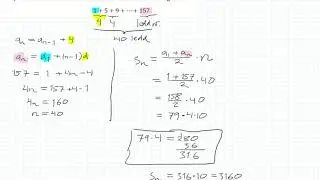 1 + 5 + 9 + ... + 157
4 4 1 odd nr.
40 sedd.
aₙ = aₙ₋₁ + 4
aₙ = a₁ + (n-1)d
157 = 1 + 4n - 4
4n = 157 + 4 - 1
4n = 160
n = 40
Sₙ = (a₁ + aₙ)/2 · n
= (1 + 157)/2 · 40
= 158/2 · 40
= 79 · 4 · 10
79 · 4 = 280
36
316
Sₙ = 316 · 10 = 3160